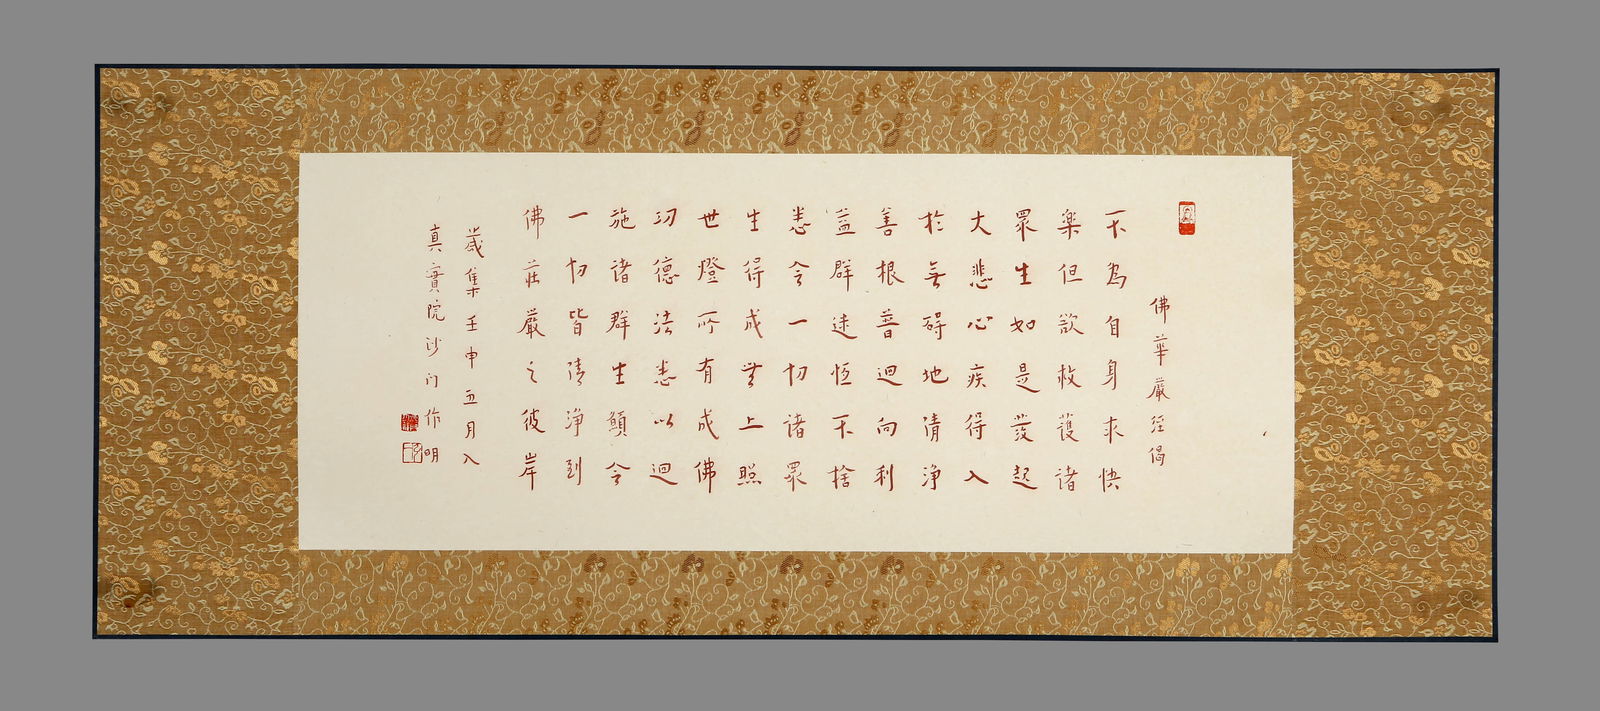 佛華嚴經偈
不為自身求快
樂但欲救護諸
眾生如是發起
大悲心疾得入
於無碍地清淨
善根普迴向利
益群迷恆不捨
悉令一切諸眾
生得成無上照
世燈所有成佛
功德法悉以迴
施諸群生願令
一切皆清淨到
佛莊嚴之彼岸
歲集壬申五月入
真實院沙門作明